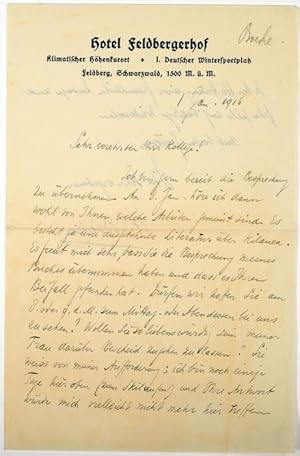 Boehe
Hotel Feldbergerhof
Klimatischer Höhenkurort • I. Deutscher Wintersportplatz
Feldberg, Schwarzwald, 1300 M. ü. M.
1. Jan. 1916
Sehr verehrter Herr Kollege!
Ich bin gern bereit die Besprechung
zu übernehmen. Am 8. Jan. höre ich dann
wohl von Ihnen, welche Arbeiten gemeint sind. Es
besteht ja eine ausgedehnte Literatur über Kilauea.
Es freut mich sehr, dass Sie die Besprechung meines
Buches übernommen haben und dass es Ihren
Beifall gefunden hat. Dürfen wir hoffen Sie am
8. oder 9. d. M. zum Mittag- oder Abendessen bei uns
zu sehen? Wollen Sie so liebenswürdig sein meiner
Frau darüber Bescheid zugehen zu lassen? Sie
weiss von meiner Aufforderung; ich bin noch einige
Tage hier oben (zum Skilaufen) und Ihre Antwort
würde mich vielleicht nicht mehr hier treffen